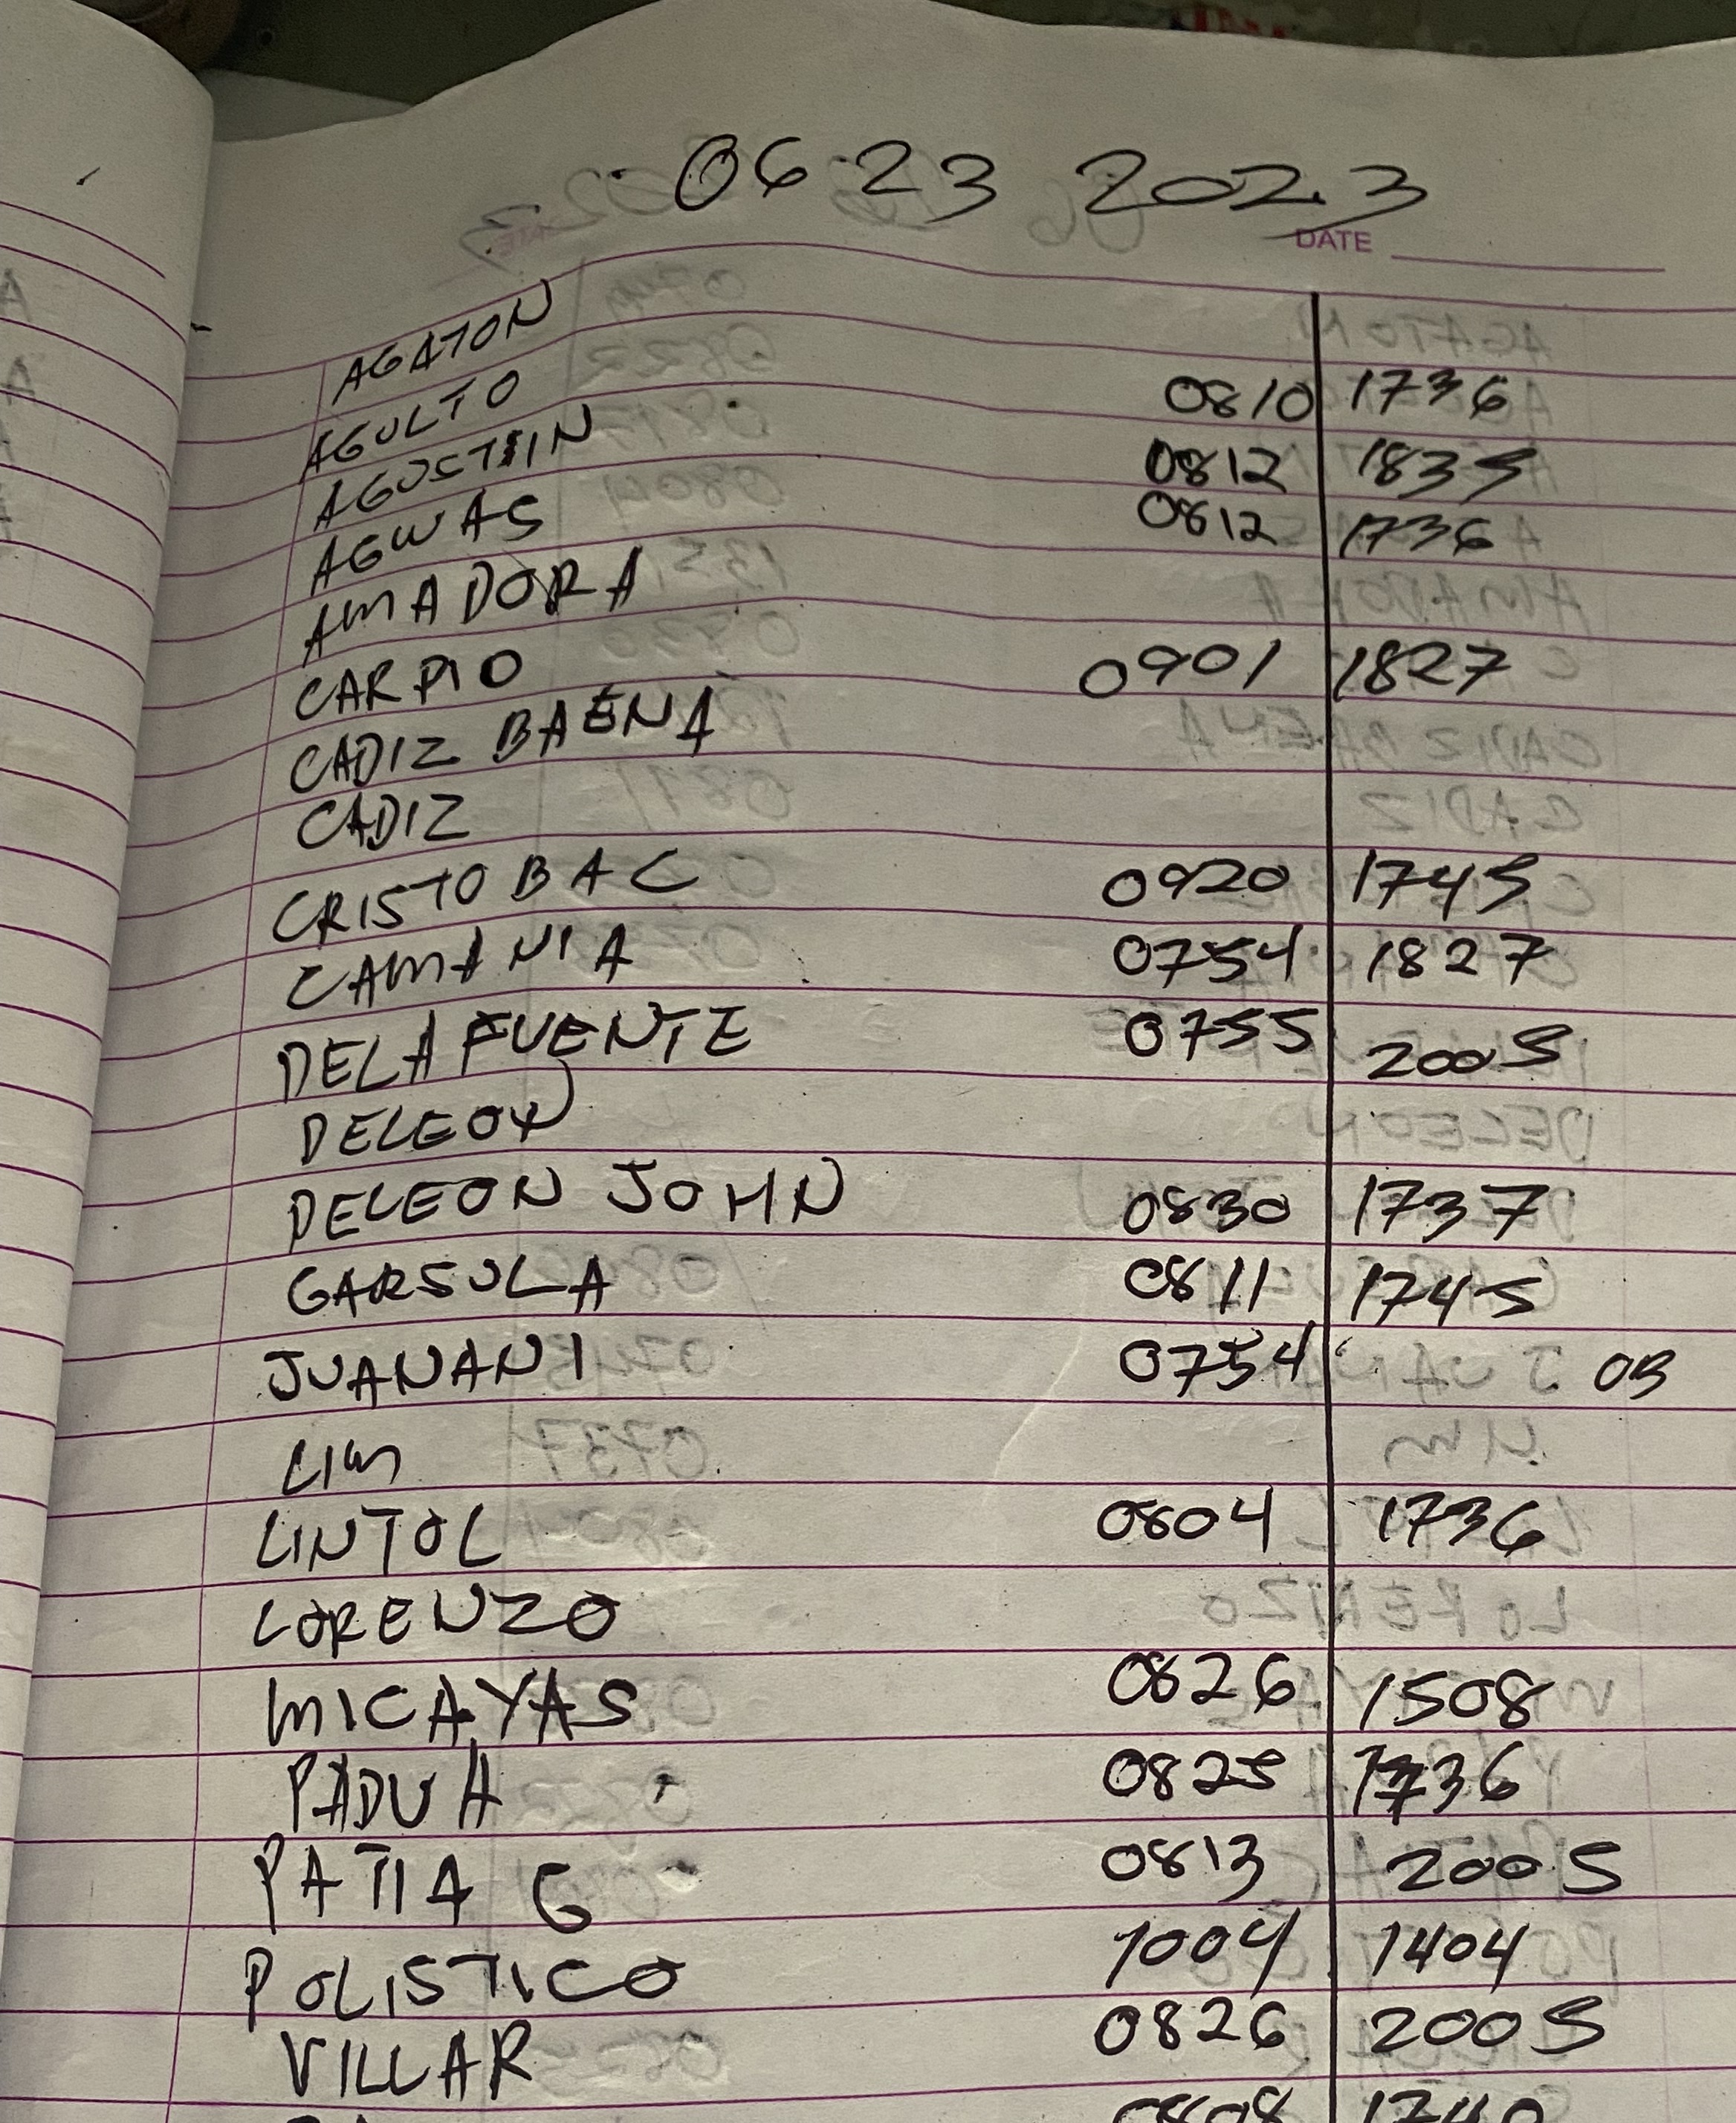 06 23 2023
DATE
AGATON
AGULTO 0810 1736
AGUSTIN 0812 1835
AGWAS 0812 1736
AMADORA
CARPIO 0901 1827
CADIZ BAENA
CADIZ
CRISTOBAL 0920 1745
CAMANIA 0754 1827
DELA FUENTE 0755 2005
DELEON
DELEON JOHN 0830 1737
GARSULA 0811 1745
JUANANI 0754 OB
LIM
LINTOL 0804 1736
LORENZO
MICAYAS 0826 1508
PADUA 0825 1736
PATIAG 0813 2005
POLISTICO 1004 1404
VILLAR 0826 2005